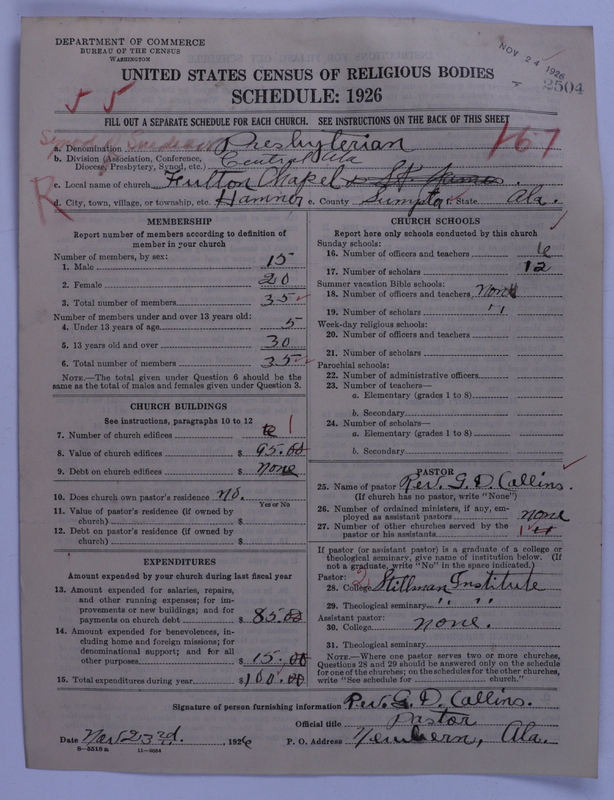 DEPARTMENT OF COMMERCE
BUREAU OF THE CENSUS
WASHINGTON
NOV 24 1926
2504
UNITED STATES CENSUS OF RELIGIOUS BODIES
SCHEDULE: 1926
55
FILL OUT A SEPARATE SCHEDULE FOR EACH CHURCH. SEE INSTRUCTIONS ON THE BACK OF THIS SHEET
167
a. Denomination Presbyterian
b. Division (Association, Conference, Diocese, Presbytery, Synod, etc.) Central Ala
c. Local name of church Fulton Chapel St. James.
R
d. City, town, village, or township, etc. Hamner e. County Sumpter f. State Ala.
MEMBERSHIP
Report number of members according to definition of
member in your church
Number of members, by sex:
1. Male 15
2. Female 20
3. Total number of members 35
Number of members under and over 13 years old:
4. Under 13 years of age 5
5. 13 years old and over 30
6. Total number of members 35
NOTE.—The total given under Question 6 should be the
same as the total of males and females given under Question 3.
CHURCH BUILDINGS
See instructions, paragraphs 10 to 12
7. Number of church edifices 1
8. Value of church edifices $ 95.00
9. Debt on church edifices $ None
10. Does church own pastor's residence no.
Yes or No
11. Value of pastor's residence (if owned by
church) $
12. Debt on pastor's residence (if owned by
church) $
EXPENDITURES
Amount expended by your church during last fiscal year
13. Amount expended for salaries, repairs,
and other running expenses; for im-
provements or new buildings; and for
payments on church debt $ 85.00
14. Amount expended for benevolences, in-
cluding home and foreign missions; for
denominational support; and for all
other purposes $ 15.00
15. Total expenditures during year $ 100.00
CHURCH SCHOOLS
Report here only schools conducted by this church
Sunday schools:
16. Number of officers and teachers 6
17. Number of scholars 12
Summer vacation Bible schools:
18. Number of officers and teachers none
19. Number of scholars "
Week-day religious schools:
20. Number of officers and teachers
21. Number of scholars
Parochial schools:
22. Number of administrative officers
23. Number of teachers—
a. Elementary (grades 1 to 8)
b. Secondary
24. Number of scholars—
a. Elementary (grades 1 to 8)
b. Secondary
PASTOR
25. Name of pastor Rev. G. D. Collins.
(If church has no pastor, write "None")
26. Number of ordained ministers, if any, em-
ployed as assistant pastors none
27. Number of other churches served by the
pastor or his assistants 1
If pastor (or assistant pastor) is a graduate of a college or
theological seminary, give name of institution below. (If
not a graduate, write "No" in space indicated.)
Pastor:
28. College Stillman Institute
29. Theological seminary " "
Assistant pastor:
30. College none.
31. Theological seminary
NOTE.—Where one pastor serves two or more churches,
Questions 28 and 29 should be answered only on the schedule
for one of the churches; on the schedules for the other churches,
write "See schedule for church."
Signature of person furnishing information Rev. G. D. Collins.
Official title Pastor
Date Nov 23rd, 1926 P. O. Address Newbern, Ala.
8—5518a 11—8884